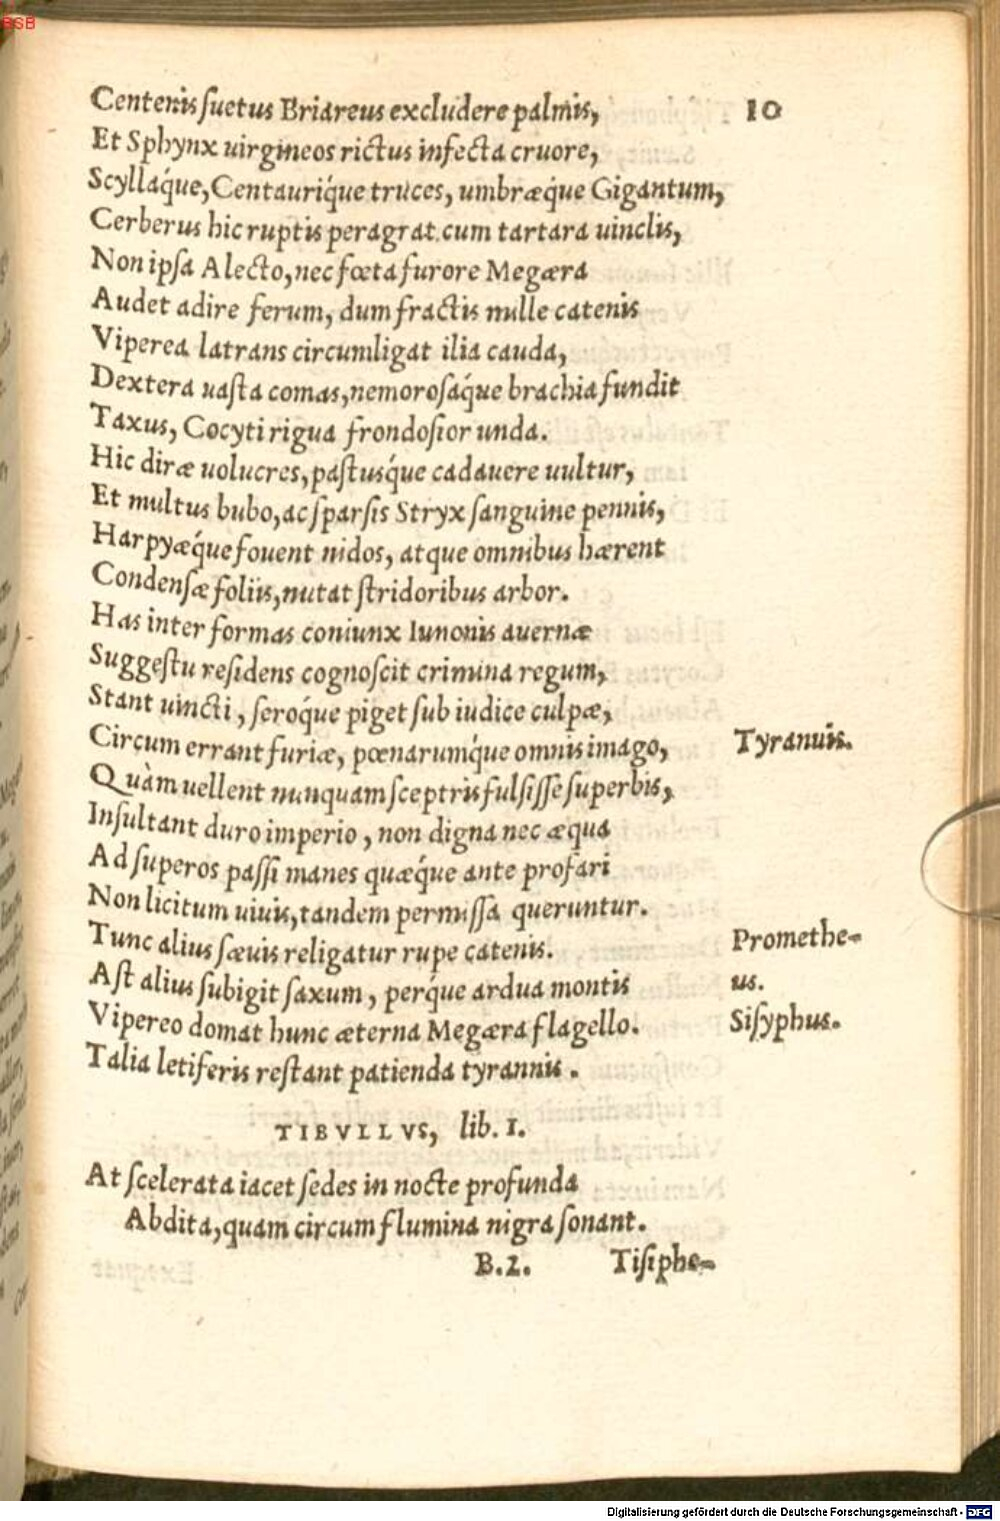 BSB
Centenis ſuetus Briareus excludere palmis, 10
Et Sphynx uirgineos rictus infecta cruore,
Scyllaq́ue, Centauriq́ue truces, umbræq́ue Gigantum,
Cerberus hic ruptis peragrat cum tartara uinclis,
Non ipſa Alecto, nec fœta furore Megæra
Audet adire ferum, dum fractis mille catenis
Viperea latrans circumligat ilia cauda,
Dextera uaſta comas, nemoroſaq́ue brachia fundit
Taxus, Cocyti rigua frondoſior unda.
Hic diræ uolucres, paſtusq́ue cadauere uultur,
Et multus bubo, ac ſparſis Stryx ſanguine pennis,
Harpyæq́ue fouent nidos, atque omnibus hærent
Condenſæ foliis, nutat ſtridoribus arbor.
Has inter formas coniunx Iunonis auernæ
Suggeſtu reſidens cognoſcit crimina regum,
Stant uincti, ſeroq́ue piget ſub iudice culpæ,
Circum errant furiæ, pœnarumq́ue omnis imago, Tyranuis.
Quàm uellent nunquam ſceptris fulſiſſe ſuperbis,
Inſultant duro imperio, non digna nec æqua
Ad ſuperos paſſi manes quæq́ue ante profari
Non licitum uiuis, tandem permiſſa queruntur.
Tunc alius ſæuis religatur rupe catenis. Promethe-
Aſt alius ſubigit ſaxum, perq́ue ardua montis us.
Vipereo domat hunc æterna Megæra flagello. Siſyphus.
Talia letiferis reſtant patienda tyrannis.
TIBVLLVS, lib. 1.
At ſcelerata iacet ſedes in nocte profunda
Abdita, quam circum flumina nigra ſonant.
B.2. Tiſiphe-
Digitalisierung gefördert durch die Deutsche Forschungsgemeinschaft - DFG